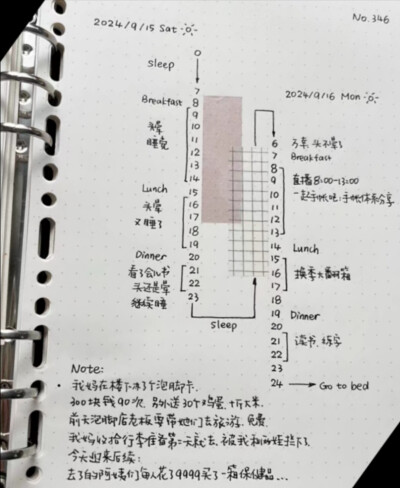 2024/9/15 Sat
No.346
0
sleep
7
8
Breakfast
9
10
11
12
13
14
头晕
睡觉
Lunch
15
16
17
18
19
头晕
又睡了
Dinner
20
21
22
23
看了会儿书
头还是晕
继续睡
sleep
2024/9/16 Mon
6
7
8
9
10
11
12
13
14
15
16
17
18
19
20
21
22
23
24
头不晕了
Breakfast
直播 8:00-13:00
一起手帐吧:手帐体系分享
Lunch
换季大翻箱
Dinner
读书、练字
Go to bed
Note:
· 我妈在楼下办了个泡脚卡.
300块钱90次. 另外送30个鸡蛋. 十斤大米.
前天泡脚店老板要带她们去旅游. 免费.
我妈收拾行李准备第二天就去. 被我和我姐拦下了.
今天迎来后续:
去了的阿姨们每人花了9999买了一箱保健品...